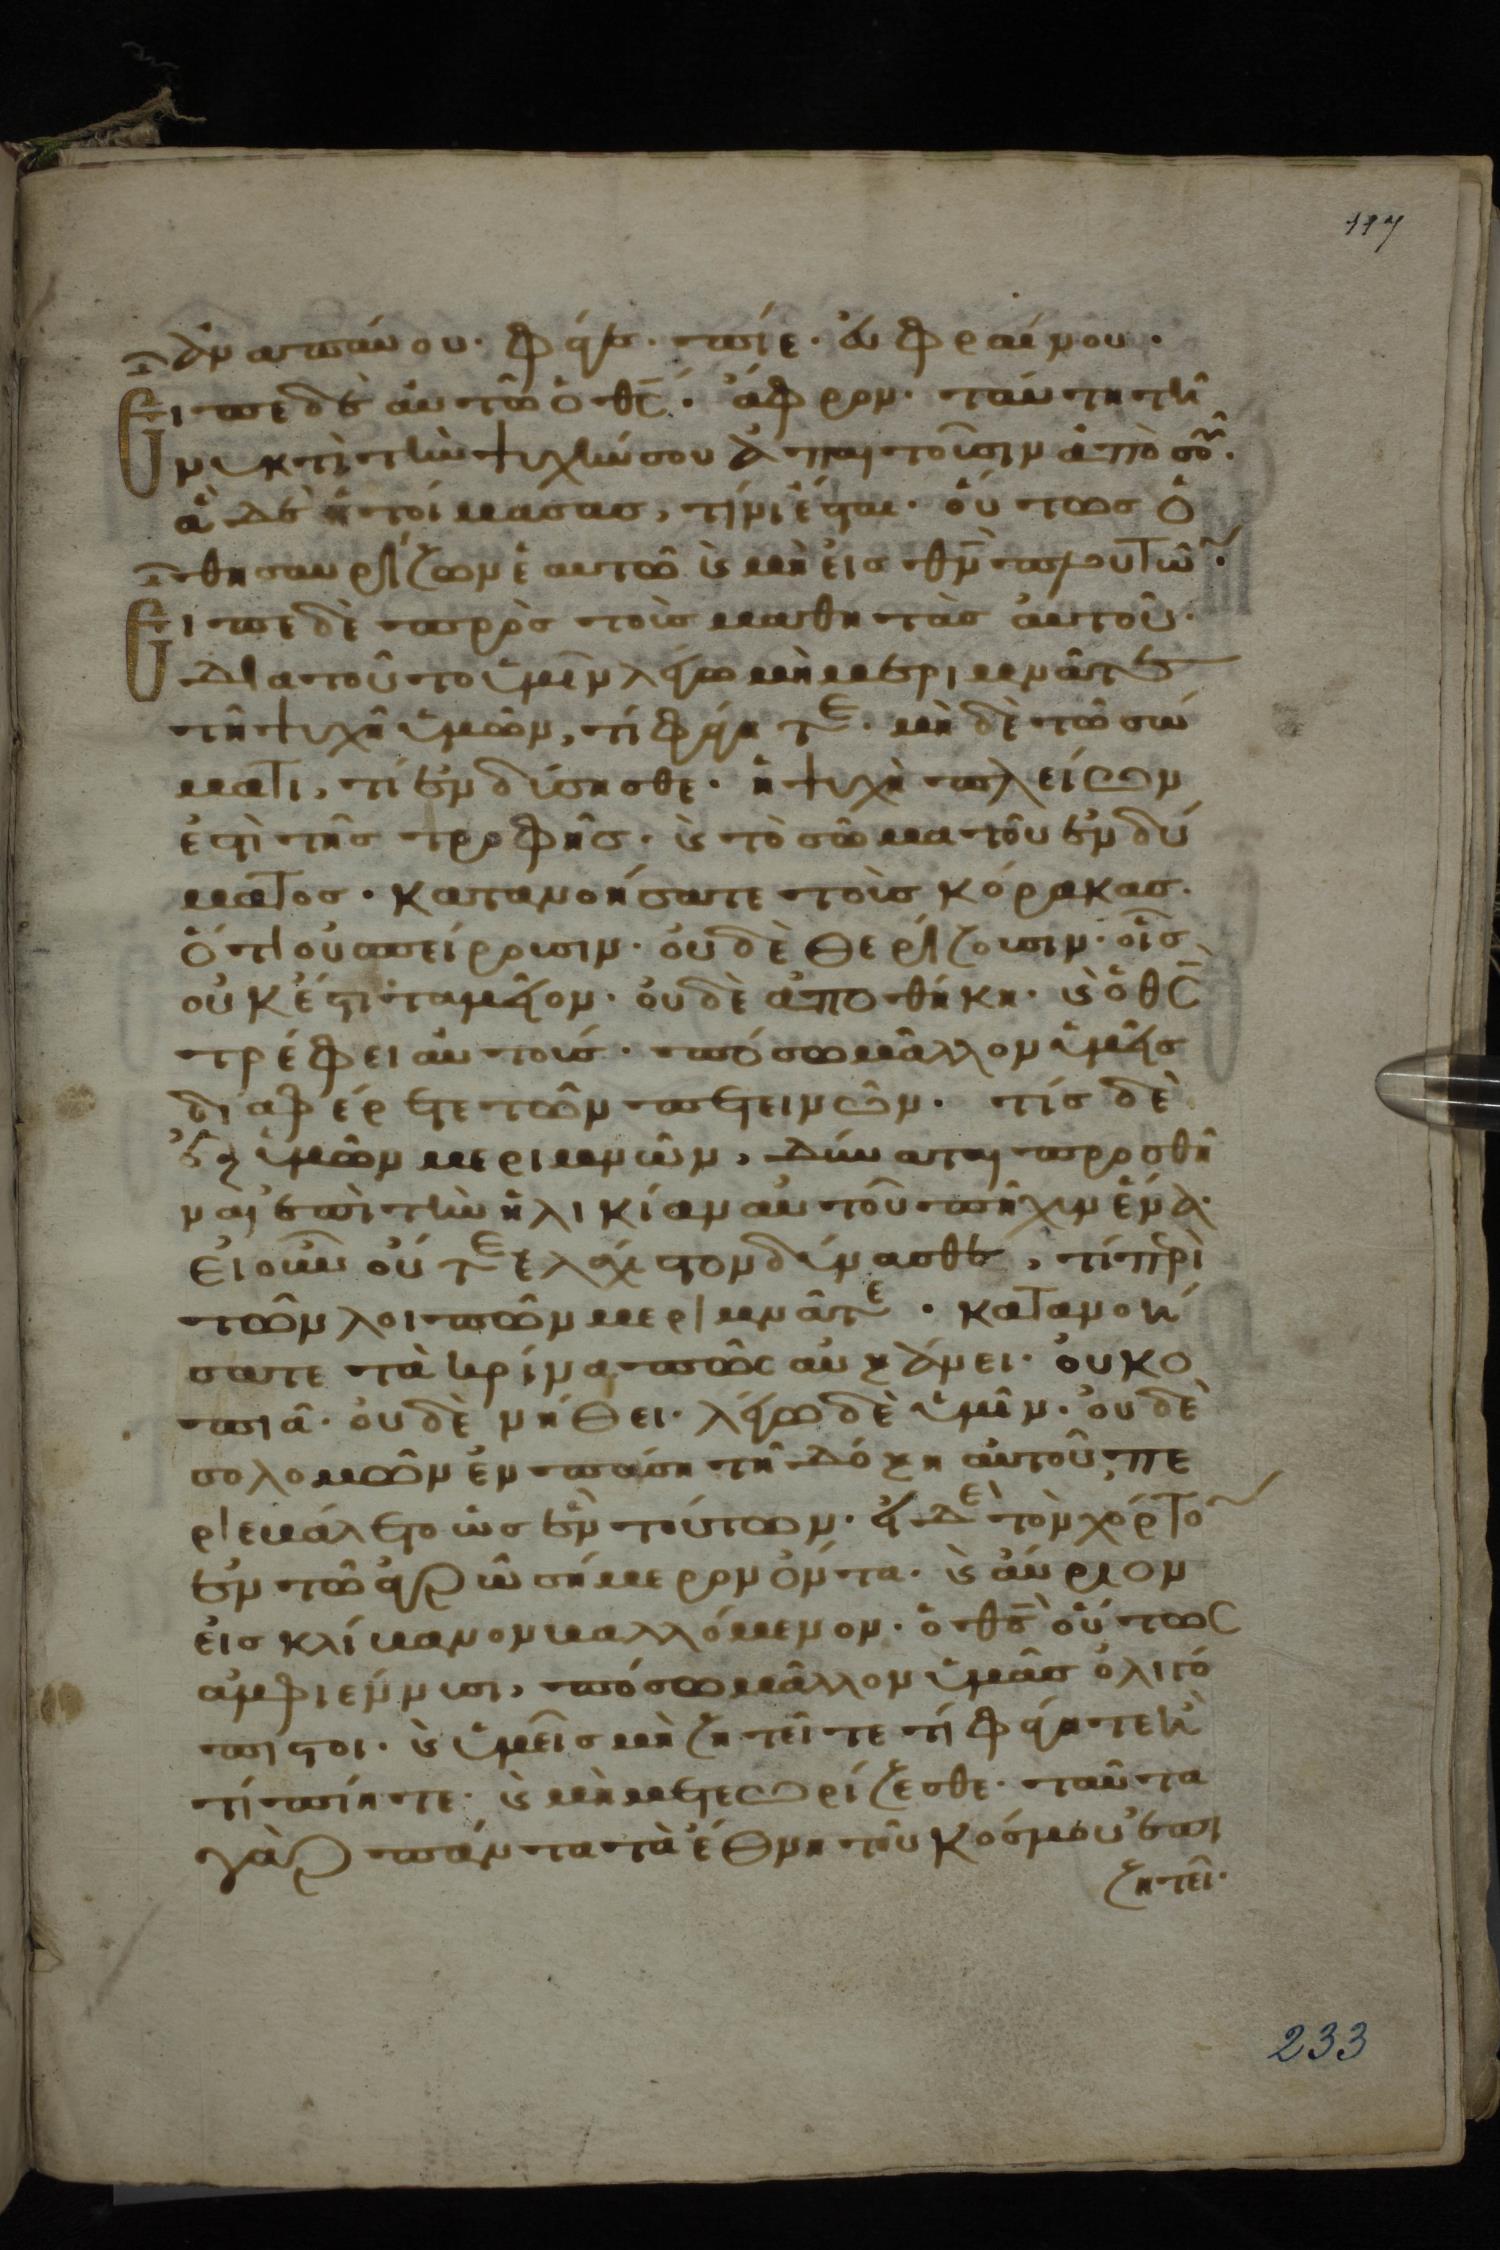 117
ἀναπαύου· φάγε· πίε· εὐφραίνου·
Εἶπε δὲ αὐτῶ ὁ θς̅· ἄφρον· ταύτη τῆ
νυκτὶ τὴν ψυχήν σου ἀπαιτοῦσιν ἀπὸ σοῦ·
ἃ δὲ ἡτοίμασας, τίνι ἔσται· οὕτως ὁ
θησαυρίζων ἑαυτῶ καὶ μὴ εἰς θν̅ πλουτῶν·
Εἶπε δὲ πρὸς τοὺς μαθητὰς αὐτοῦ·
Διατοῦτο ὑμῖν λέγω μὴ μεριμνᾶτε
τῆ ψυχῆ ὑμῶν, τί φάγητε· μηδὲ τῶ σώ
ματι, τί ἐνδύσησθε· ἡ ψυχὴ πλείων
ἐστὶ τῆς τροφῆς· καὶ τὸ σῶμα τοῦ ἐνδύ
ματος· κατανοήσατε τοὺς κόρακας·
ὅτι οὐ σπείρουσιν· οὐδὲ θερίζουσιν· οἷς
οὐκ ἔστι ταμεῖον· οὐδὲ ἀποθήκη· καὶ ὁ θς̅
τρέφει αὐτούς· πόσω μᾶλλον ὑμεῖς
διαφέρετε τῶν πετεινῶν· τίς δὲ
ἐξ ὑμῶν μεριμνῶν, δύναται προσθῆ
ναι ἐπὶ τὴν ἡλικίαν αὐτοῦ πῆχυν ἕνα·
Εἰ οὖν οὔτε ἐλάχιστον δύνασθε, τί περὶ
τῶν λοιπῶν μεριμνᾶτε· κατανοή
σατε τὰ κρίνα πῶς αὐξάνει· οὐ κο
πιᾶ· οὐδὲ νήθει· λέγω δὲ ὑμῖν· οὐδὲ
σολομῶν ἐν πάση τῆ δόξη αὐτοῦ, πε
ριεβάλετο ὡς ἓν τούτων· εἰ δὲ τὸν χόρτον
ἐν τῶ ἀγρῶ σήμερον ὄντα· καὶ αὔριον
εἰς κλίβανον βαλλόμενον· ὁ θς̅ οὕτως
ἀμφιέννυσι, πόσω μᾶλλον ὑμᾶς ὀλιγό
πιστοι· καὶ ὑμεῖς μὴ ζητεῖτε τί φάγητε ἢ
τί πίητε· καὶ μὴ μετεωρίζεσθε· ταῦτα
γὰρ πάντα τὰ ἔθνη τοῦ κόσμου ἐπι
ζητεῖ·
233